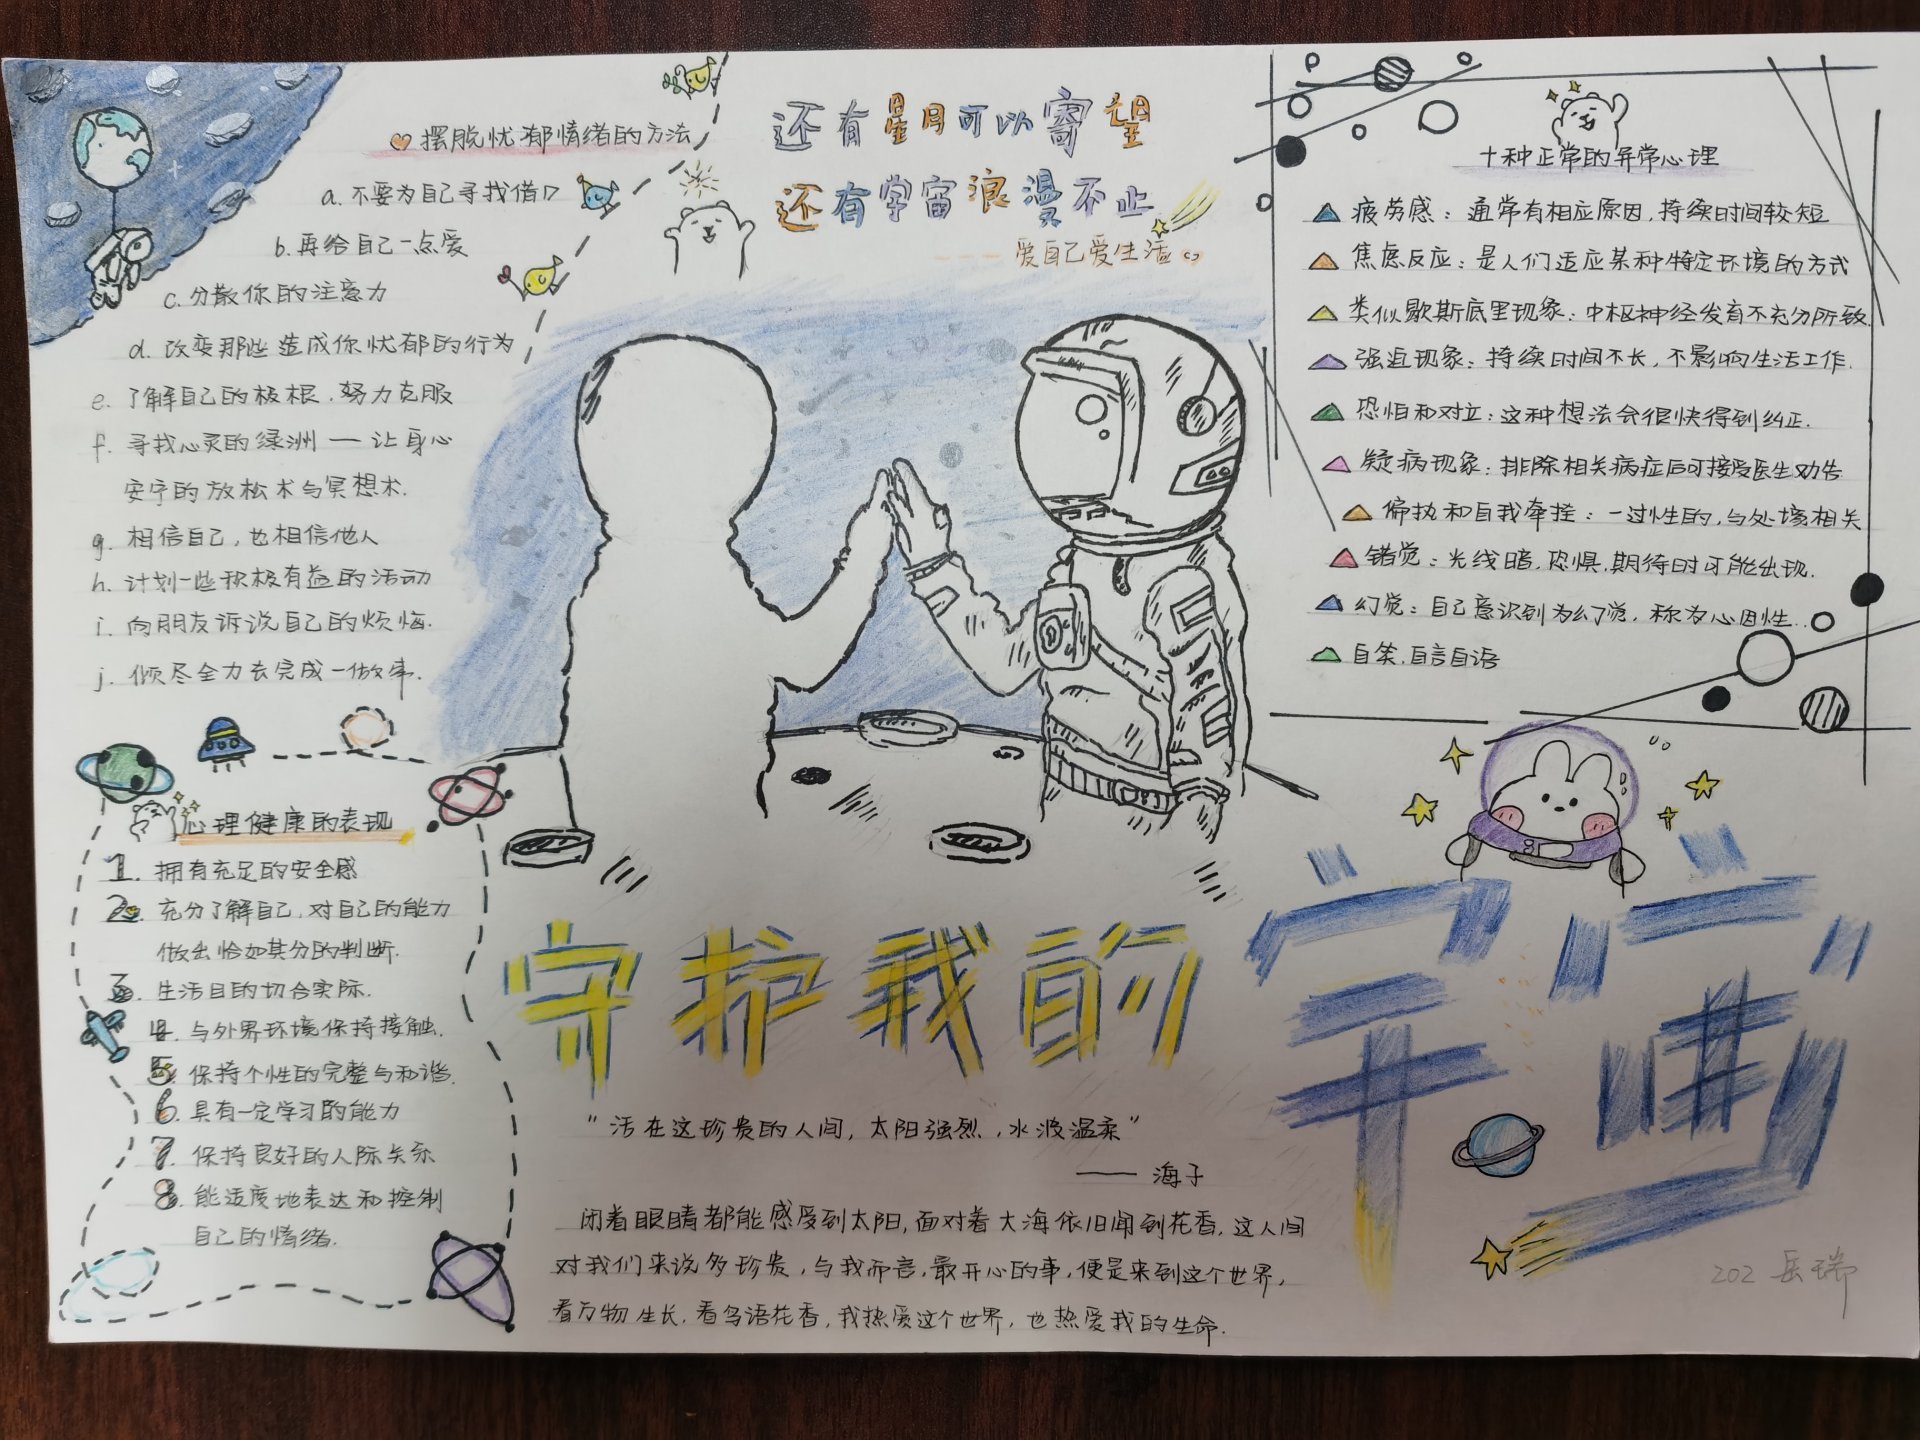 摆脱忧郁情绪的方法
a.不要为自己寻找借口
b.再给自己一点爱
c.分散你的注意力
d.改变那些造成你忧郁的行为
e.了解自己的极根,努力克服
f.寻找心灵的绿洲——让身心
安宁的放松术与冥想术.
g.相信自己,也相信他人
h.计划一些积极有益的活动
i.向朋友诉说自己的烦恼.
j.倾尽全力去完成一做事.
还有星月可以寄望
还有宇宙浪漫不止
---爱自己爱生活
十种正常的异常心理
疲劳感:通常有相应原因,持续时间较短
焦虑反应:是人们适应某种特定环境的方式
类似歇斯底里现象:中枢神经发育不充分所致.
强迫现象:持续时间不长,不影响生活工作.
恐怕和对立:这种想法会很快得到纠正.
疑病现象:排除相关病症后可接受医生劝告
偏执和自我牵挂:一过性的,与处境相关
错觉:光线暗,恐惧,期待时可能出现.
幻觉:自己意识到为幻觉,称为心因性.
自笑,自言自语
心理健康的表现
1.拥有充足的安全感
2.充分了解自己,对自己的能力
做出恰如其分的判断.
3.生活目的切合实际.
4.与外界环境保持接触.
5.保持个性的完整与和谐.
6.具有一定学习的能力
7.保持良好的人际关系
8.能适度地表达和控制
自己的情绪.
守护我的宇宙
"活在这珍贵的人间,太阳强烈,水波温柔"
——海子
闭着眼睛都能感受到太阳,面对着大海依旧闻到花香,这人间
对我们来说多珍贵,与我而言,最开心的事,便是来到这个世界,
看万物生长,看鸟语花香,我热爱这个世界,也热爱我的生命.
202 岳瑞